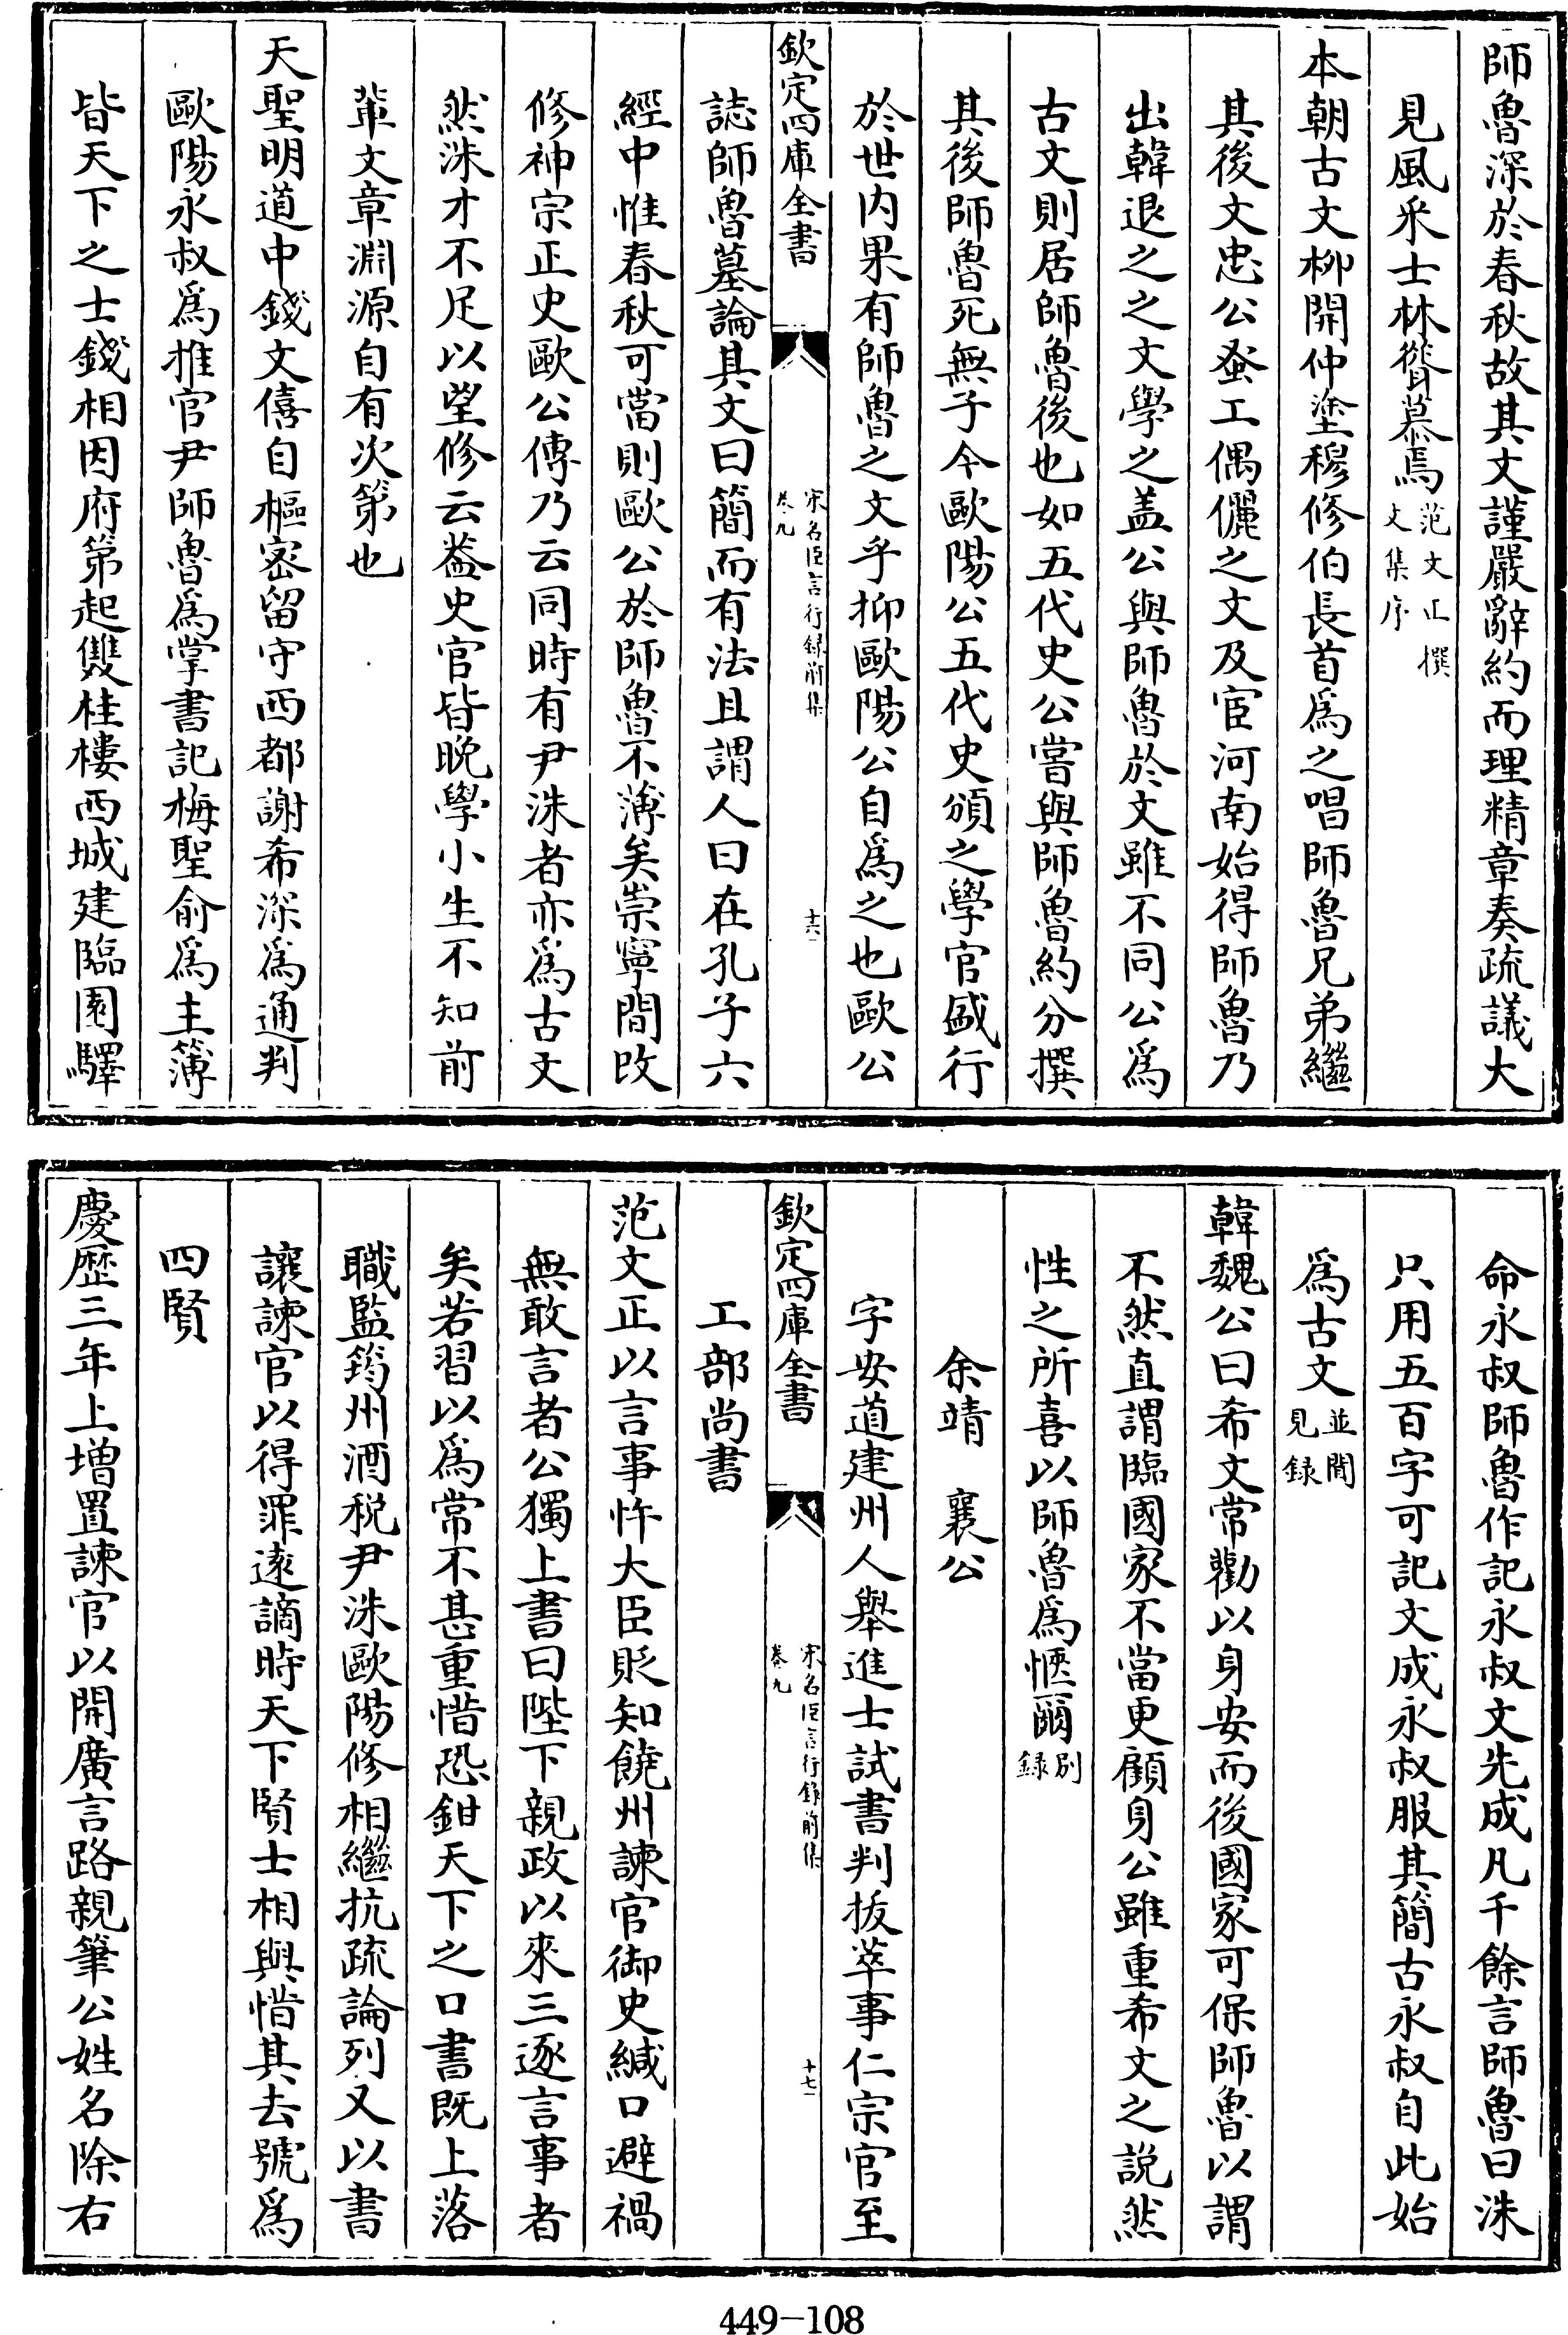 師魯深於春秋故其文謹嚴辭約而理精章奏疏議大
見風采士林聳慕焉范文正撰文集序
本朝古文柳開仲塗穆修伯長首爲之唱師魯兄弟繼
其後文忠公蚤工偶儷之文及宦河南始得師魯乃
出韓退之之文學之盖公與師魯於文雖不同公爲
古文則居師魯後也如五代史公嘗與師魯約分撰
其後師魯死無子今歐陽公五代史頒之學官盛行
於世内果有師魯之文乎抑歐陽公自爲之也歐公
欽定四庫全書
宋名臣言行録前集
卷九
十六
誌師魯墓論其文曰簡而有法且謂人曰在孔子六
經中惟春秋可當則歐公於師魯不薄矣崇寧間改
修神宗正史歐公傳乃云同時有尹洙者亦爲古文
然洙才不足以望修云葢史官皆晚學小生不知前
軰文章淵源自有次第也
天聖明道中錢文僖自樞密留守西都謝希深爲通判
歐陽永叔爲推官尹師魯爲掌書記梅聖俞爲主簿
皆天下之士錢相因府第起雙桂樓西城建臨園驛
命永叔師魯作記永叔文先成凡千餘言師魯曰洙
只用五百字可記文成永叔服其簡古永叔自此始
爲古文並聞見録
韓魏公曰希文常勸以身安而後國家可保師魯以謂
不然直謂臨國家不當更顧身公雖重希文之説然
性之所喜以師魯爲愜爾別録
余靖 襄公
字安道建州人舉進士試書判拔萃事仁宗官至
欽定四庫全書
宋名臣言行録前集
卷九
十七
工部尚書
范文正以言事忤大臣貶知饒州諫官御史緘口避禍
無敢言者公獨上書曰陛下親政以來三逐言事者
矣若習以爲常不甚重惜恐鉗天下之口書既上落
職監筠州酒税尹洙歐陽修相繼抗疏論列又以書
讓諫官以得罪逺謫時天下賢士相與惜其去號爲
四賢
慶歴三年上增置諫官以開廣言路親筆公姓名除右
449-108